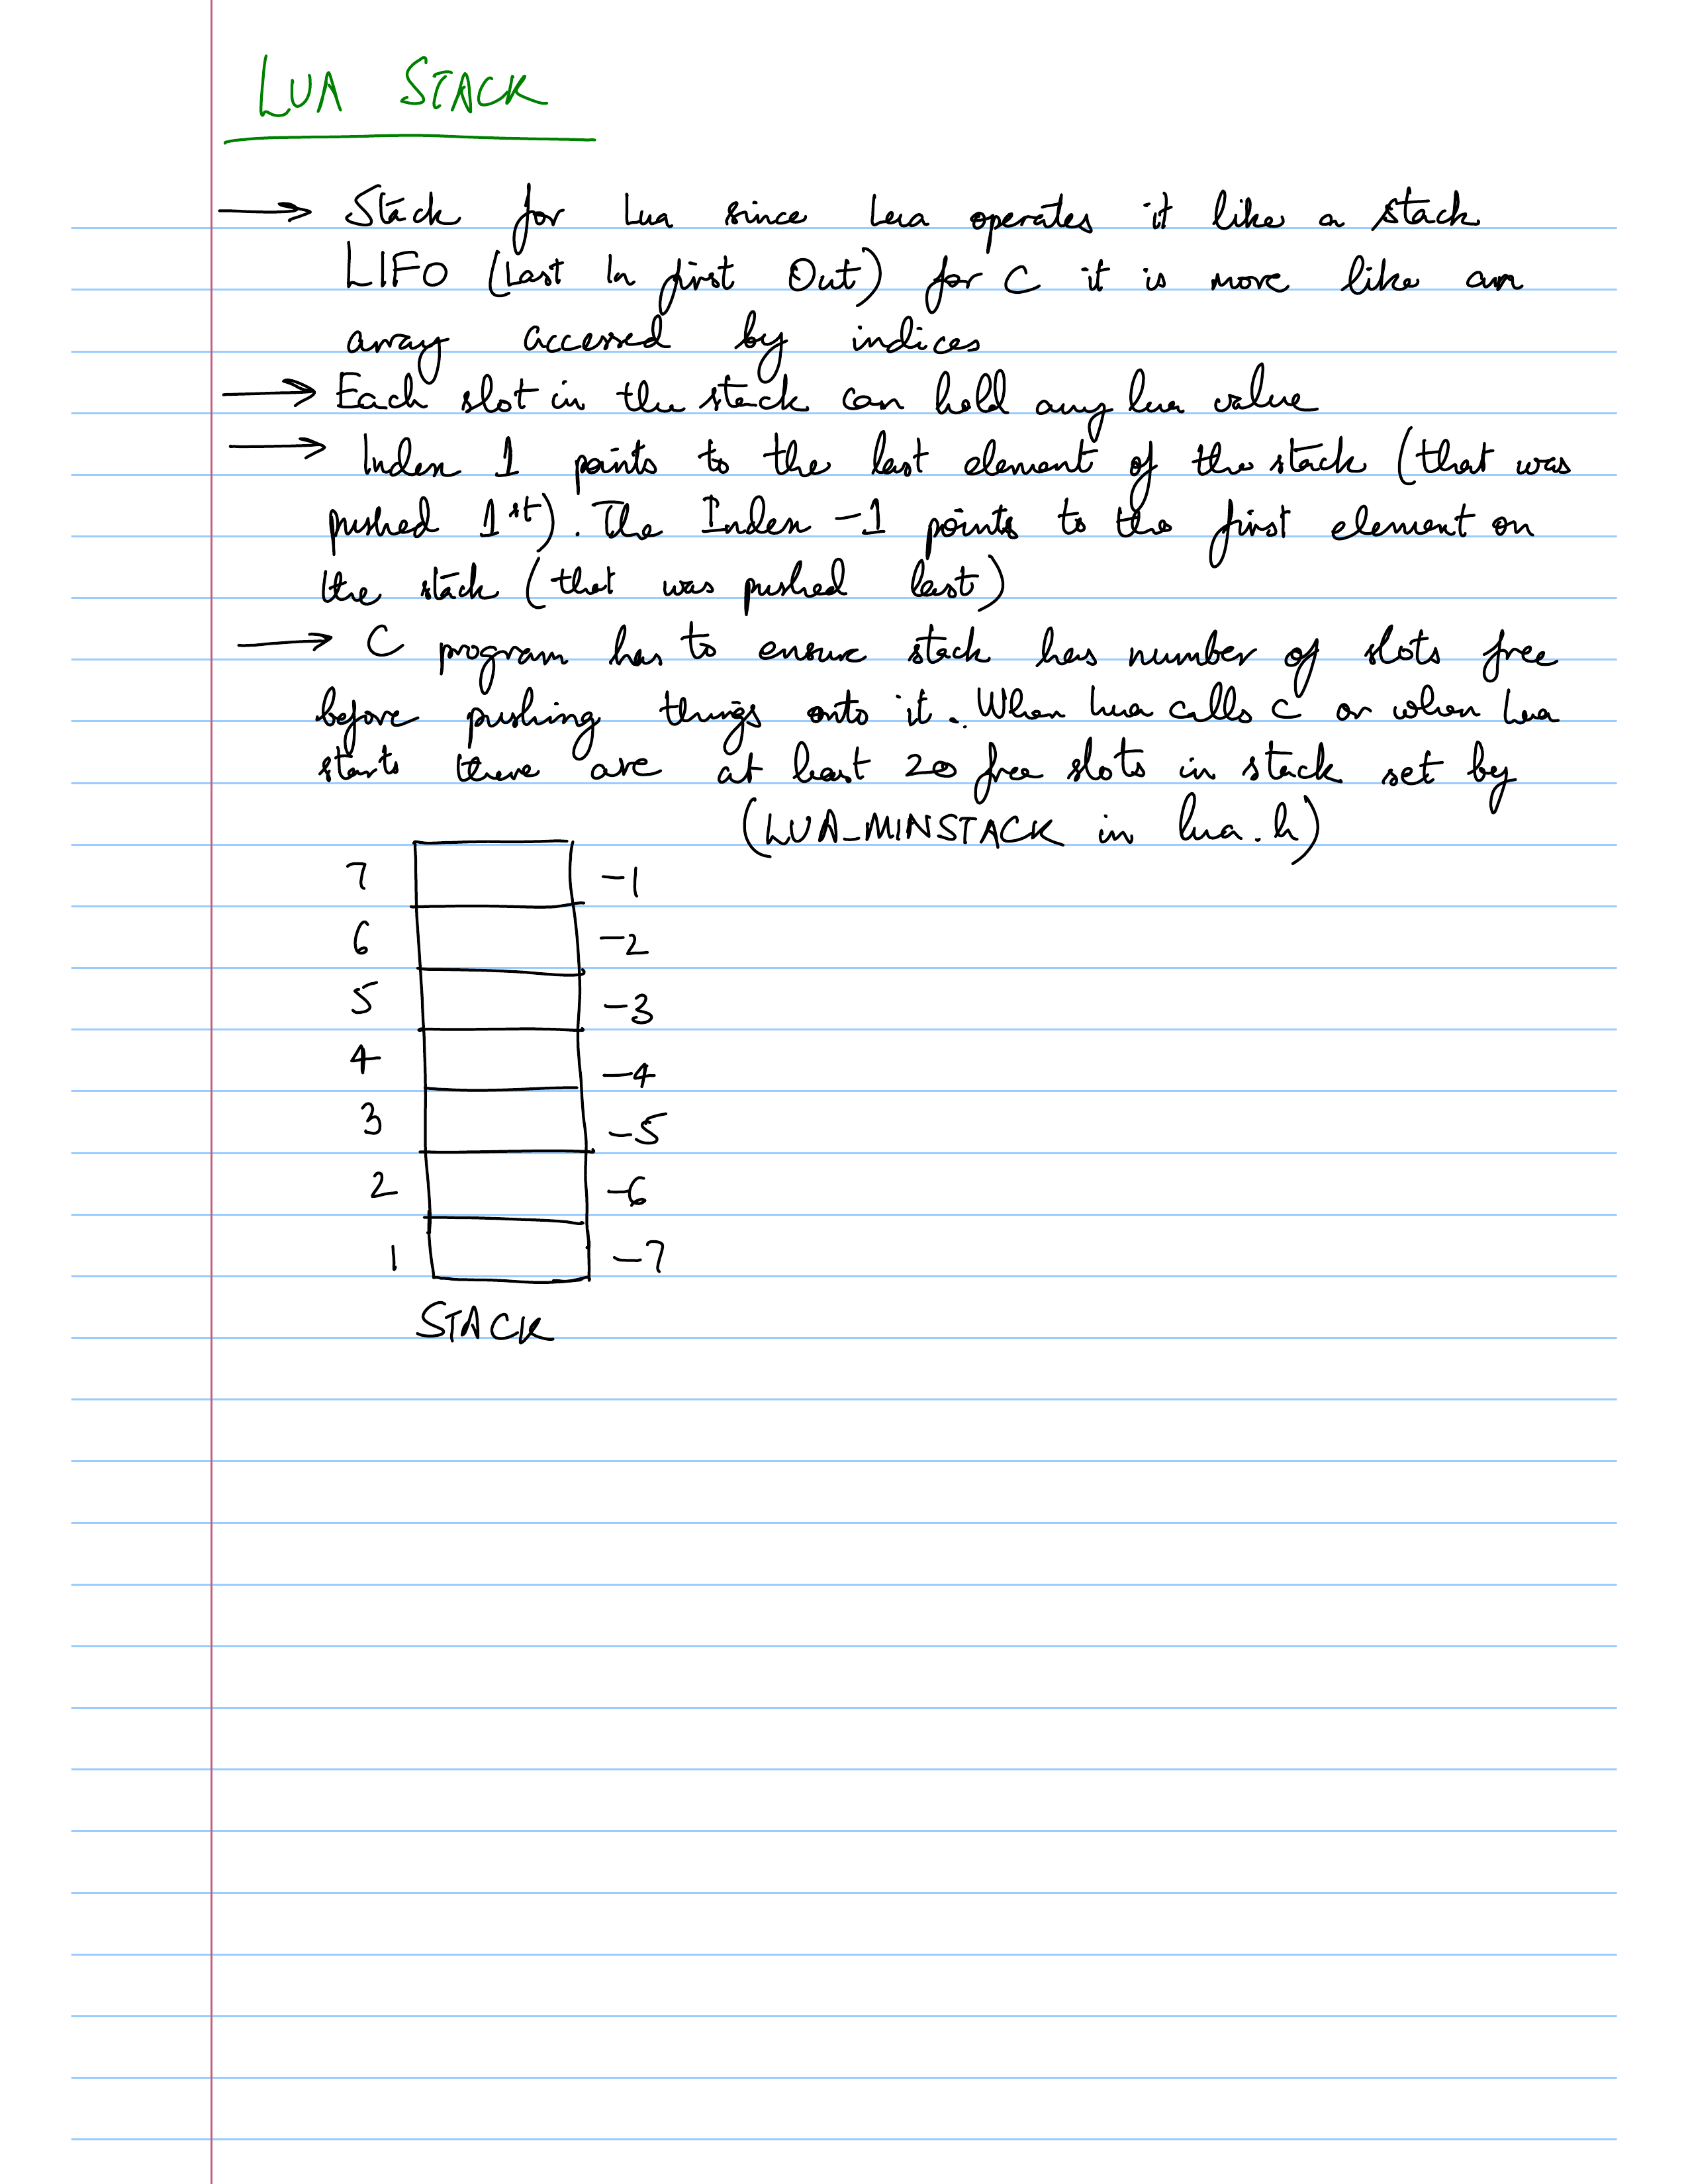 LUA STACK
→ Stack for Lua since Lua operates it like a stack
LIFO (Last In first Out) for C it is more like an
array accessed by indices
→ Each slot in the stack can hold any lua value
→ Index 1 points to the last element of the stack (that was
pushed 1st). The Index -1 points to the first element on
the stack (that was pushed last)
→ C program has to ensure stack has number of slots free
before pushing things onto it. When Lua calls C or when Lua
starts there are at least 20 free slots in stack set by
(LUA_MINSTACK in lua.h)
7 -1
6 -2
5 -3
4 -4
3 -5
2 -6
1 -7
STACK